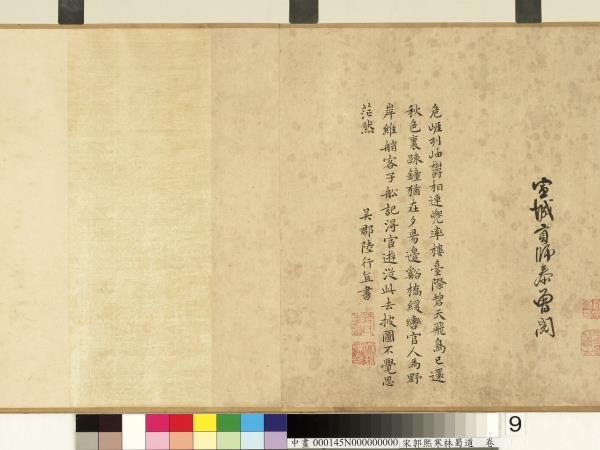 宣城貢師泰曾閱
危崖列岫鬱相連兜率樓臺際碧天飛鳥已還
秋色裏疎鐘猶在夕陽邊谿橋緩轡官人馬野
岸維艄客子船記得官遊從此去披圖不覺思
茫然
吳郡陸行直書
9
中畫 000145N000000000 宋郭熙寒林蜀道 卷